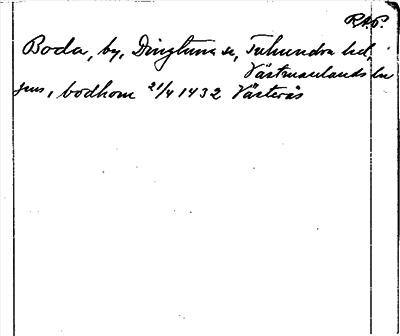 RAP.
Boda, by, Dingtuna sn, Tuhundra hd,
Västmanlands län
jens, bodhom 21/4 1432 Västerås